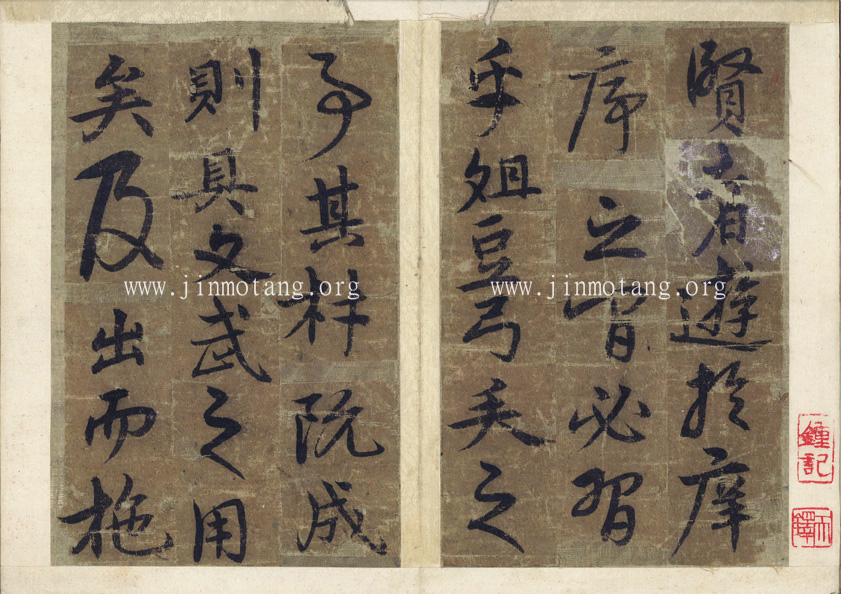 賢者遊於庠
序之間必習
乎俎豆弓矢之
事其材既成
則具文武之用
矣及出而施
www.jinmotang.org
www.jinmotang.org
鍾記